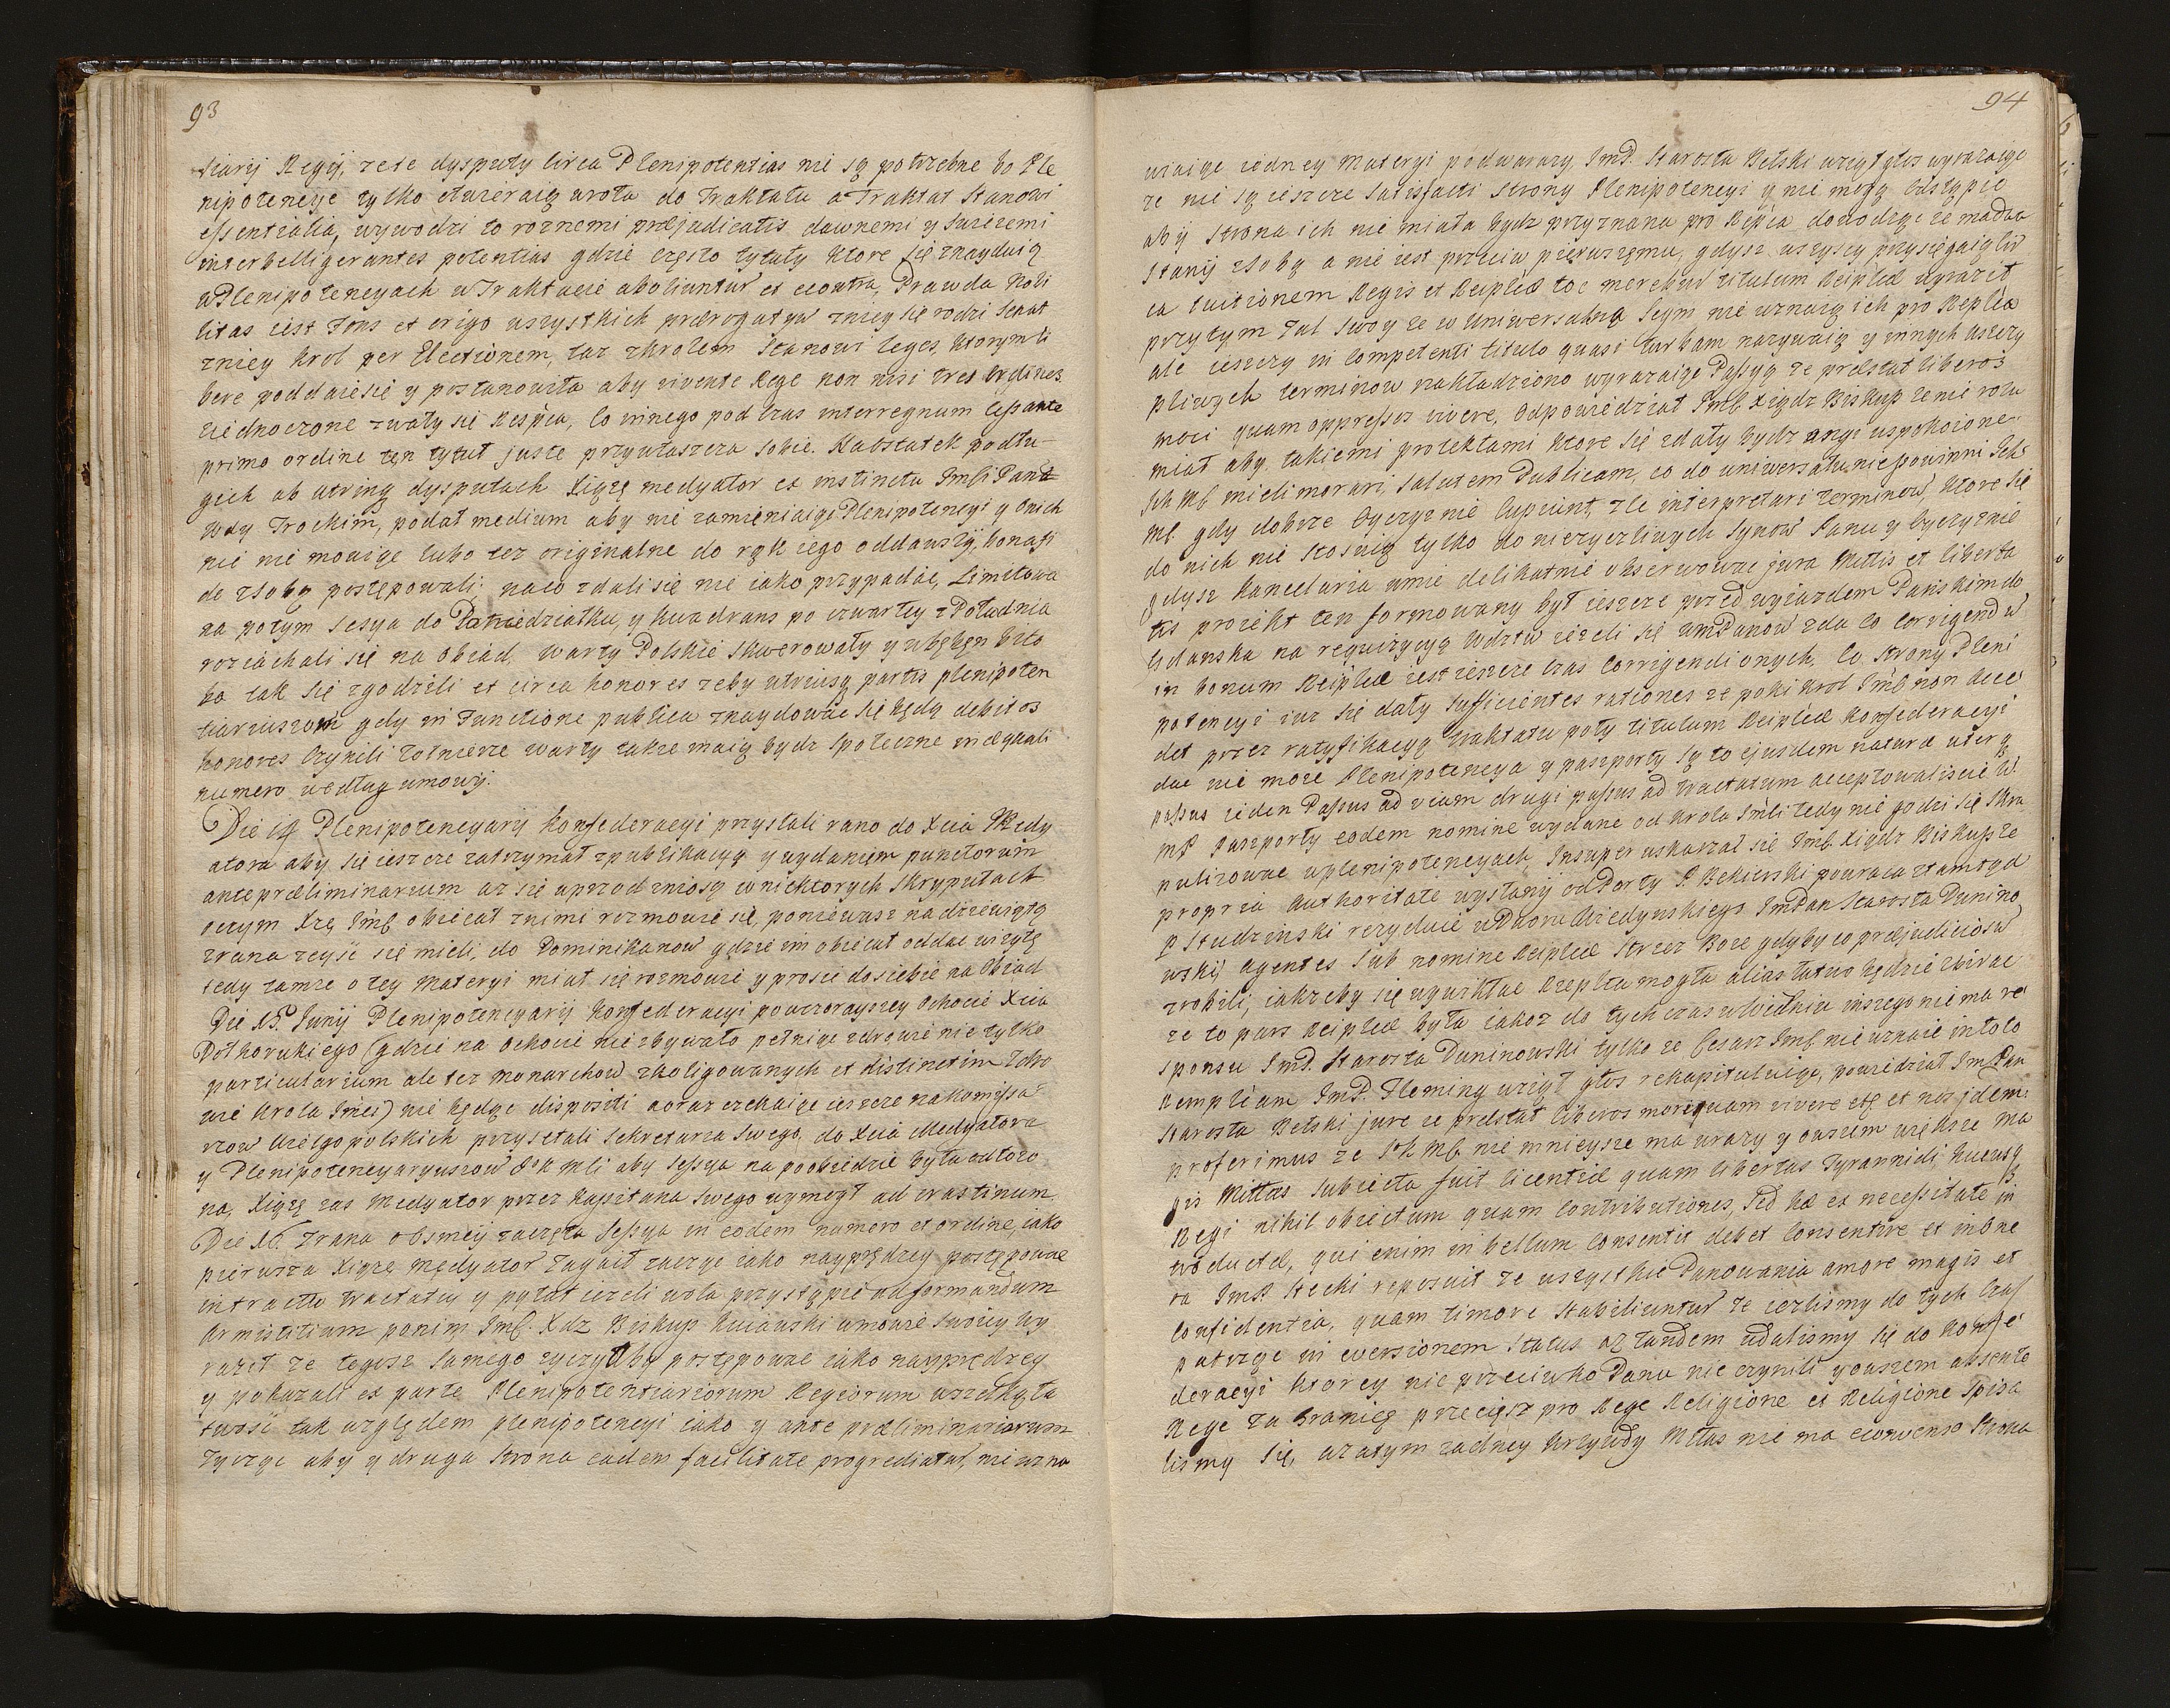 93
siarij Regij, ze te dysputy circa Plenipotentias nie są potrzebne bo Ple
nipotencye tylko otwieraią wrota do Traktatu a Traktat Stanowi
essentialia, wywodzi to roznemi præjudicatis dawnemi y swieżemi
inter belligerantes potentias gdzie często tytuły ktore się znayduią
w Plenipotencyach w Traktacie aboliuntur et econtra, Prawda Nobi
litas iest Fons et origo wszystkich prærogatyw zniey się rodzi Senat
zniey Krol per Electionem, taz zkrolem Stanowi leges, ktorym li
bere poddaie się y postanowiła aby vivente Rege non nisi tres ordines
ziednoczone zwały się Respca, Co innego pod czas interregnum cessante
primo ordine ten tytuł juste przywłaszcza sobie. Na ostatek po dłu-
gich ab utrinq dysputach Xiąże medyator ex instinctu Imści Pana
Wdy Trockim, podał medium aby nie zamieniaiąc Plenipotencyi y onich
nic nie mowiąc lubo tez originalne do rąk iego oddawszy, bona fi
de zsobą postępowali, naco zdali się nie iako przypadać, Limitowa
na potym Sesya do Poniedziałku, y kwadrans po czwartey z Południa
roziachali się na obiad. Warty Polskie skwerowały y w bęben biło
bo tak się zgodzili et circa honores zeby utriusq partis plenipoten
tiariuszom gdy in Functione publica znaydować się będą debitos
honores czynili żołnierze warty także maią bydz społeczne in æquali
numero według umowy.
Die 14 Plenipotencyarij Konfederacyi przysłali rano do Xcia Medy
atora aby się ieszcze zatrzymał zpublikacyą y wydaniem punctorum
antepræliminarium az się uprzod zniosą w niektorych skrypułach
oczym Xże Imść obiecał znimi rozmowić się, ponieważ na dziewiątą
zrana zeyść się mieli, do Dominikanow gdzie im obiecał oddać wizytę
tedy tamze o tey materyi miał się rozmowić y prosić do siebie na Obiad
Die 15. Junij Plenipotencyarij Konfederacyi po wczorayszey ochocie Xcia
Dołhorukiego (gdzie na ochocie nie zbywało pełniąc zdrowie nie tylko
particularium ale tez Monarchow zkoligowanych et distinctim Zdro
wie Krola Imci) nie będąc dispositi a oraz czekaiąc ieszcze na Komissa
rzow Wielgopolskich przysełali Sekretarza Swego, do Xcia Medyatora
y Plenipotencyaryuszow JKMCi aby sessya na poobiedzie była odłozo
na, Xiążę zas Medyator przez Kapitana Swego wymogł ad crastinum.
Die 16. Zrana o osmey zaczęta Sessya in eodem numero et ordine, iako
pierwsza Xiąże Medyator zagaił zaczęe iako nayprędzey postępować
intractu tractatus y pytał ieżeli wola przystąpić ad formandum
Armistitium ponim Imść. Xdz Biskup Kuiawski w mowie Swoiey wy
raził ze tegosz samego życzyłby postępować iako nayprędzey
y pokazali ex parte Plenipotentiariorum Regiorum wszelką ła
twość tak względem plenipotencyi iako y ante præliminariorum
Życząc aby y druga strona eadem facilitate progrediatur, nie wzna
94
wiaiąc iedney materyi podwarazy, ImP. Starosta Bełski wziął głos wyrazaiąc
ze nie są ieszcze Satisfacti Strony Plenipotencyi y nie mogą odstąpić
aby strona ich nie miała bydz przyznana pro Repca dowodząc ze ma dwa
Stany zsobą a nie iest przeciw pierwszemu, gdysz wszyscy przysięgaiący
ca tuitionem Regis et Reiplcæ toc meretur titulum Reiplcæ wyraził
przytym zal swoy ze w Uniwersałną Seym nie uznaią ich pro Replca
ale ieszcze in Competenti titulo quasi turbam nazywaią y innych uszczy
pliwych terminow nakładziono wyrazaiąc Passyą ze præstat liberos
mori quam oppressos vivere. Odpowiedział Imść Xiądz Biskup ze nie rozu
miał aby takiemi protektami ktore się zdały bydz ongi uspokoione
Ich Mć mieli morari, Salutem Publicam, co do uniwersału nie powinni Ich
Mć gdy dobrze Oyczyznie Cupiunt, źle interpretari terminow, ktore się
do nich nie stosuią tylko do nieżyczliwych synow Panu y Oyczyznie
gdysz Kancelaria umie delikatnie obserwować jura Nttis et liberta
tis proiekt ten formowany był ieszcze przed wyiazdem Pańskim do
Gdańska na requizycyą Wdztw ieżeli się WmPanow zda co corrigendu
in bonum Reiplcæ iest ieszcze czas corrigendi onych. Co strony Pleni
potencyi iuz się dały sufficientes rationes ze poki Krol Imść non acce
det przez ratyfikacyą traktatu poty titulum Reiplcæ Konfederacyi
dac nie może Plenipotencya y paszporty są to ejusdem naturæ uterq
passus ieden Passus ad viam drugi passus ad tractatum acceptowaliscie W
MP Paszporty eodem nomine wydane od Krola Imści tedy nie godzi się skru
pulizowac wplenipotencyach, Insuper uskarzał się Imść Xiądz Biskup ze
propria Authoritate wysłany od Porty P. Bekierski powraca ztamtąd
P Studzinski rezyduie u Dworu Wiedynskiego ImPan Starosta Dunino
wskij agentes sub nomine Reiplcæ strzez Boze gdyby co præjudiciosu
zrobili, iakzeby się uwikłac Rzeplta mogła alias łatwo będzie zbirac
ze to pars Reiplcæ była iakoz do tych czas w Widniu inszego nie ma re
sponsu ImP. Starosta Duninowski tylko ze Cesarz Imść nie uznaie in toto
Rempl cam ImP. Fleming wziął głos rekapituluiąc, powiedział ImPan
Starosta Bełski jure ze præstat liberos mori quam vivere etc et nos idem
proferimus ze JK Mć nie mnieysze ma urazy y owszem większe ma
gis Mittas subiecta fuit licentiæ quam libertas Tyrannidi, hucusq
Regi nihil obiectum quam Contributiones, sed hæ ex necessitate in
troductæ, qui enim in bellum consentit debet consentire et in one
ra ImP. Stecki reposuit ze wszystkie Panowania amore magis et
confidentia, quam timore stabiliuntur ze iezlismy do tych czas
patrząc in eversionem Status aż tandem udalismy się do Konfe
deracyi ktorey nic przeciwko Panu nie czynili y owszem absente
Rege za Granicę przeciesz pro Rege Religione et Religione spisa
lismy się, azatym żadney krzywdy Mttas nie ma econverso strona